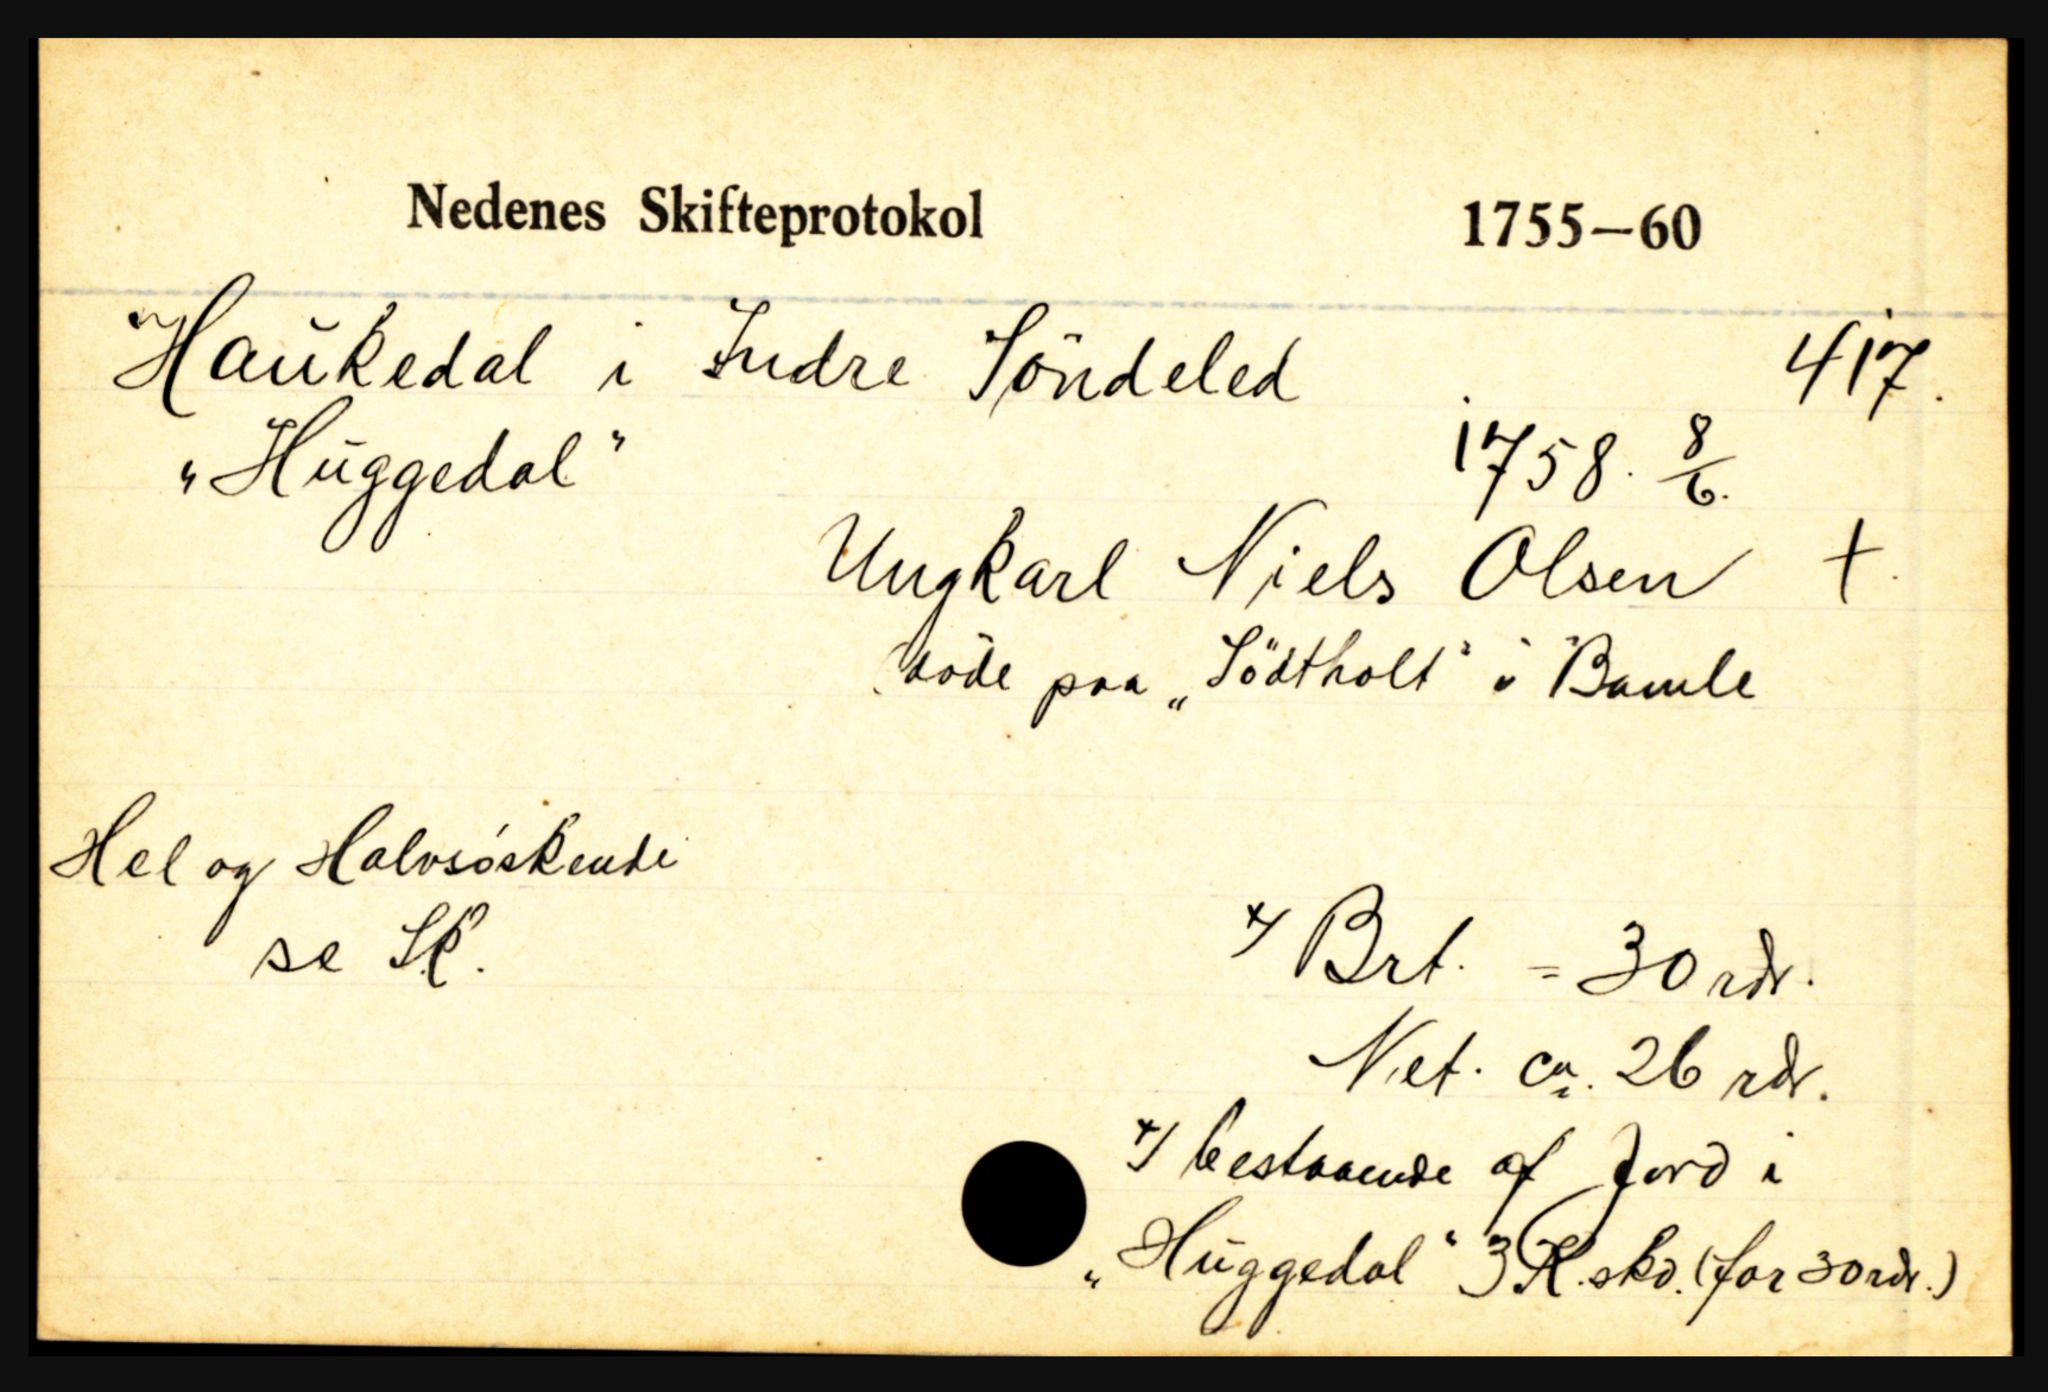 Nedenes Skifteprotokol 1755—60
Haukedal i Indre Söndeled 417.
„Huggedal" 1758. 8/6.
Ungkarl Niels Olsen +
döde paa „Södtholt" i Bamle
Hel og Halvsöskende
se Sk.
x/ Brt. = 30 rdr.
Net. ca. 26 rdr.
x/ bestaaende af Jord i
„Huggedal" 3 K. skd. (for 30 rdr.)